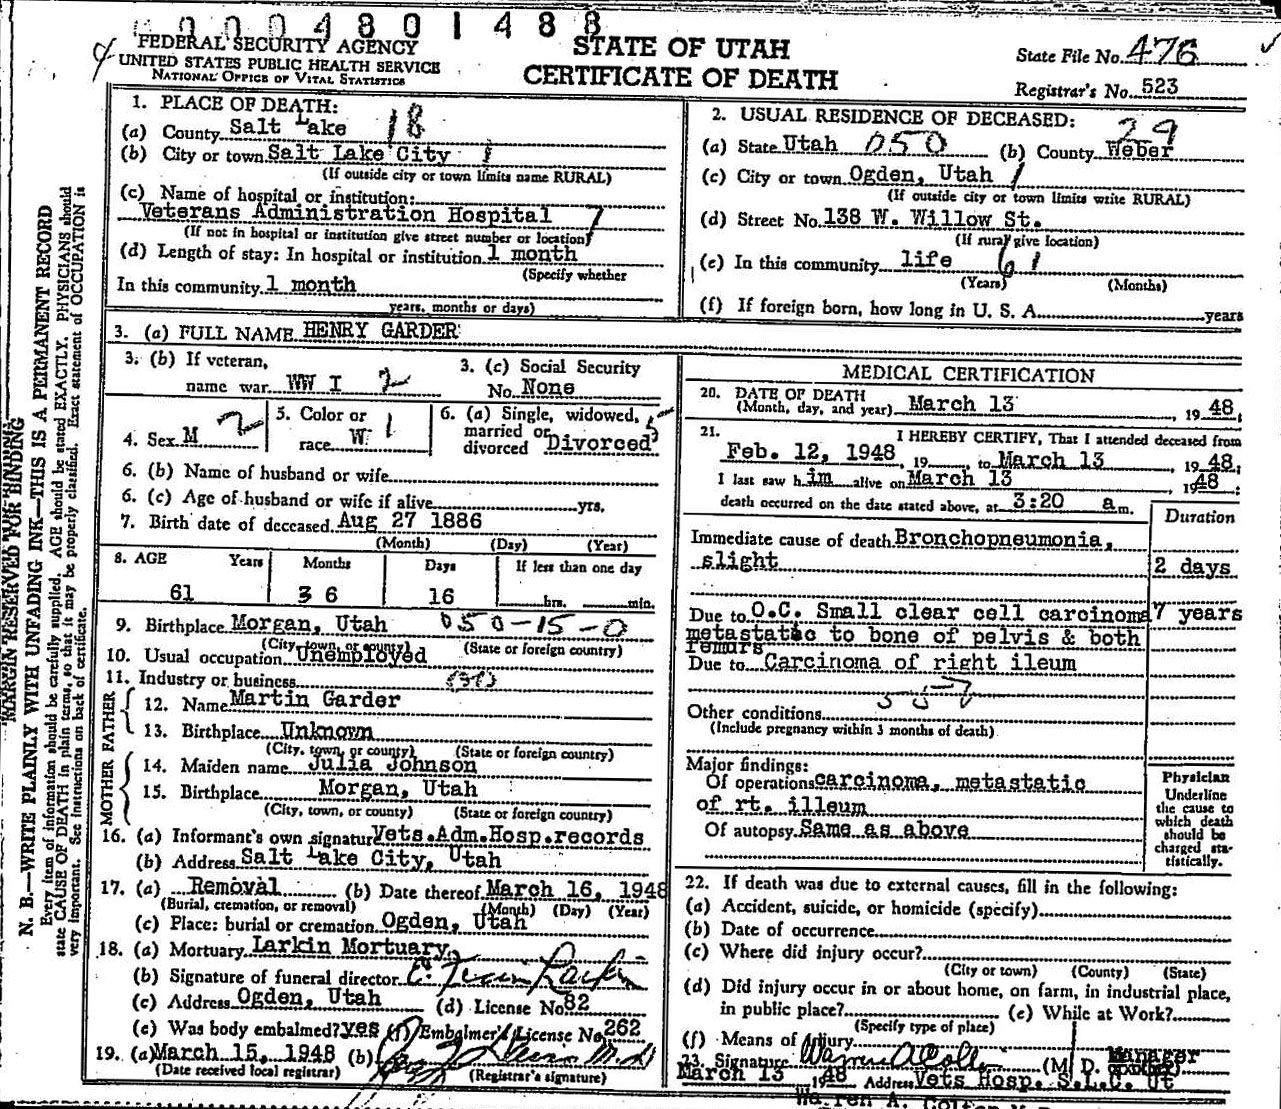 0004801488
FEDERAL SECURITY AGENCY
UNITED STATES PUBLIC HEALTH SERVICE
NATIONAL OFFICE OF VITAL STATISTICS
STATE OF UTAH
CERTIFICATE OF DEATH
State File No. 476
Registrar's No. 523
MARGIN RESERVED FOR BINDING
N. B.—WRITE PLAINLY WITH UNFADING INK—THIS IS A PERMANENT RECORD
Every item of information should be carefully supplied. AGE should be stated EXACTLY. PHYSICIANS should
state CAUSE OF DEATH in plain terms, so that it may be properly classified. Exact statement of OCCUPATION is
very important. See instructions on back of certificate.
1. PLACE OF DEATH:
(a) County Salt Lake 18
(b) City or town Salt Lake City 1
(If outside city or town limits name RURAL)
(c) Name of hospital or institution:
Veterans Administration Hospital 7
(If not in hospital or institution give street number or location)
(d) Length of stay: In hospital or institution 1 month
(Specify whether
In this community 1 month
years, months or days)
2. USUAL RESIDENCE OF DECEASED: 29
(a) State Utah 050 (b) County Weber
(c) City or town Ogden, Utah 1
(If outside city or town limits write RURAL)
(d) Street No. 138 W. Willow St.
(If rural give location)
(e) In this community life 61
(Years) (Months)
(f) If foreign born, how long in U. S. A. years
3. (a) FULL NAME HENRY GARDER
3. (b) If veteran,
name war WW I 2
3. (c) Social Security
No. None
4. Sex M 2
5. Color or
race W 1
6. (a) Single, widowed,
married or
divorced Divorced 5
6. (b) Name of husband or wife
6. (c) Age of husband or wife if alive yrs.
7. Birth date of deceased Aug 27 1886
(Month) (Day) (Year)
8. AGE Years Months Days If less than one day
61 3 6 16 hrs. min.
9. Birthplace Morgan, Utah 050-15-0
(City, town, or county) (State or foreign country)
10. Usual occupation Unemployed
11. Industry or business
FATHER
12. Name Martin Garder
13. Birthplace Unknown
(City, town, or county) (State or foreign country)
MOTHER
14. Maiden name Julia Johnson
15. Birthplace Morgan, Utah
(City, town, or county) (State or foreign country)
16. (a) Informant's own signature Vets.Adm.Hosp.records
(b) Address Salt Lake City, Utah
17. (a) Removal (b) Date thereof March 16, 1948
(Burial, cremation, or removal) (Month) (Day) (Year)
(c) Place: burial or cremation Ogden, Utah
18. (a) Mortuary Larkin Mortuary
(b) Signature of funeral director Larkin
(c) Address Ogden, Utah (d) License No. 82
(e) Was body embalmed? yes (f) Embalmer's License No. 262
19. (a) March 15, 1948 (b) M. D.
(Date received local registrar) (Registrar's signature)
MEDICAL CERTIFICATION
20. DATE OF DEATH
(Month, day, and year) March 13, 1948;
21. I HEREBY CERTIFY, That I attended deceased from
Feb. 12, 1948, 19 , to March 13, 1948;
I last saw him alive on March 13, 1948;
death occurred on the date stated above, at 3:20 a.m.
Duration
Immediate cause of death Bronchopneumonia,
slight 2 days
Due to O.C. Small clear cell carcinoma 7 years
metastatic to bone of pelvis & both
femurs
Due to Carcinoma of right ileum
Other conditions
(Include pregnancy within 3 months of death)
Major findings:
Of operations carcinoma, metastatic
of rt. illeum
Of autopsy Same as above
Physician
Underline
the cause to
which death
should be
charged sta-
tistically.
22. If death was due to external causes, fill in the following:
(a) Accident, suicide, or homicide (specify)
(b) Date of occurrence
(c) Where did injury occur?
(City or town) (County) (State)
(d) Did injury occur in or about home, on farm, in industrial place,
in public place? (e) While at Work?
(Specify type of place)
(f) Means of Injury
23. Signature Warren A Colton (M. D. Manager
March 13 1948 Address Vets Hosp. S.L.C. Ut
Warren A. Colton M D